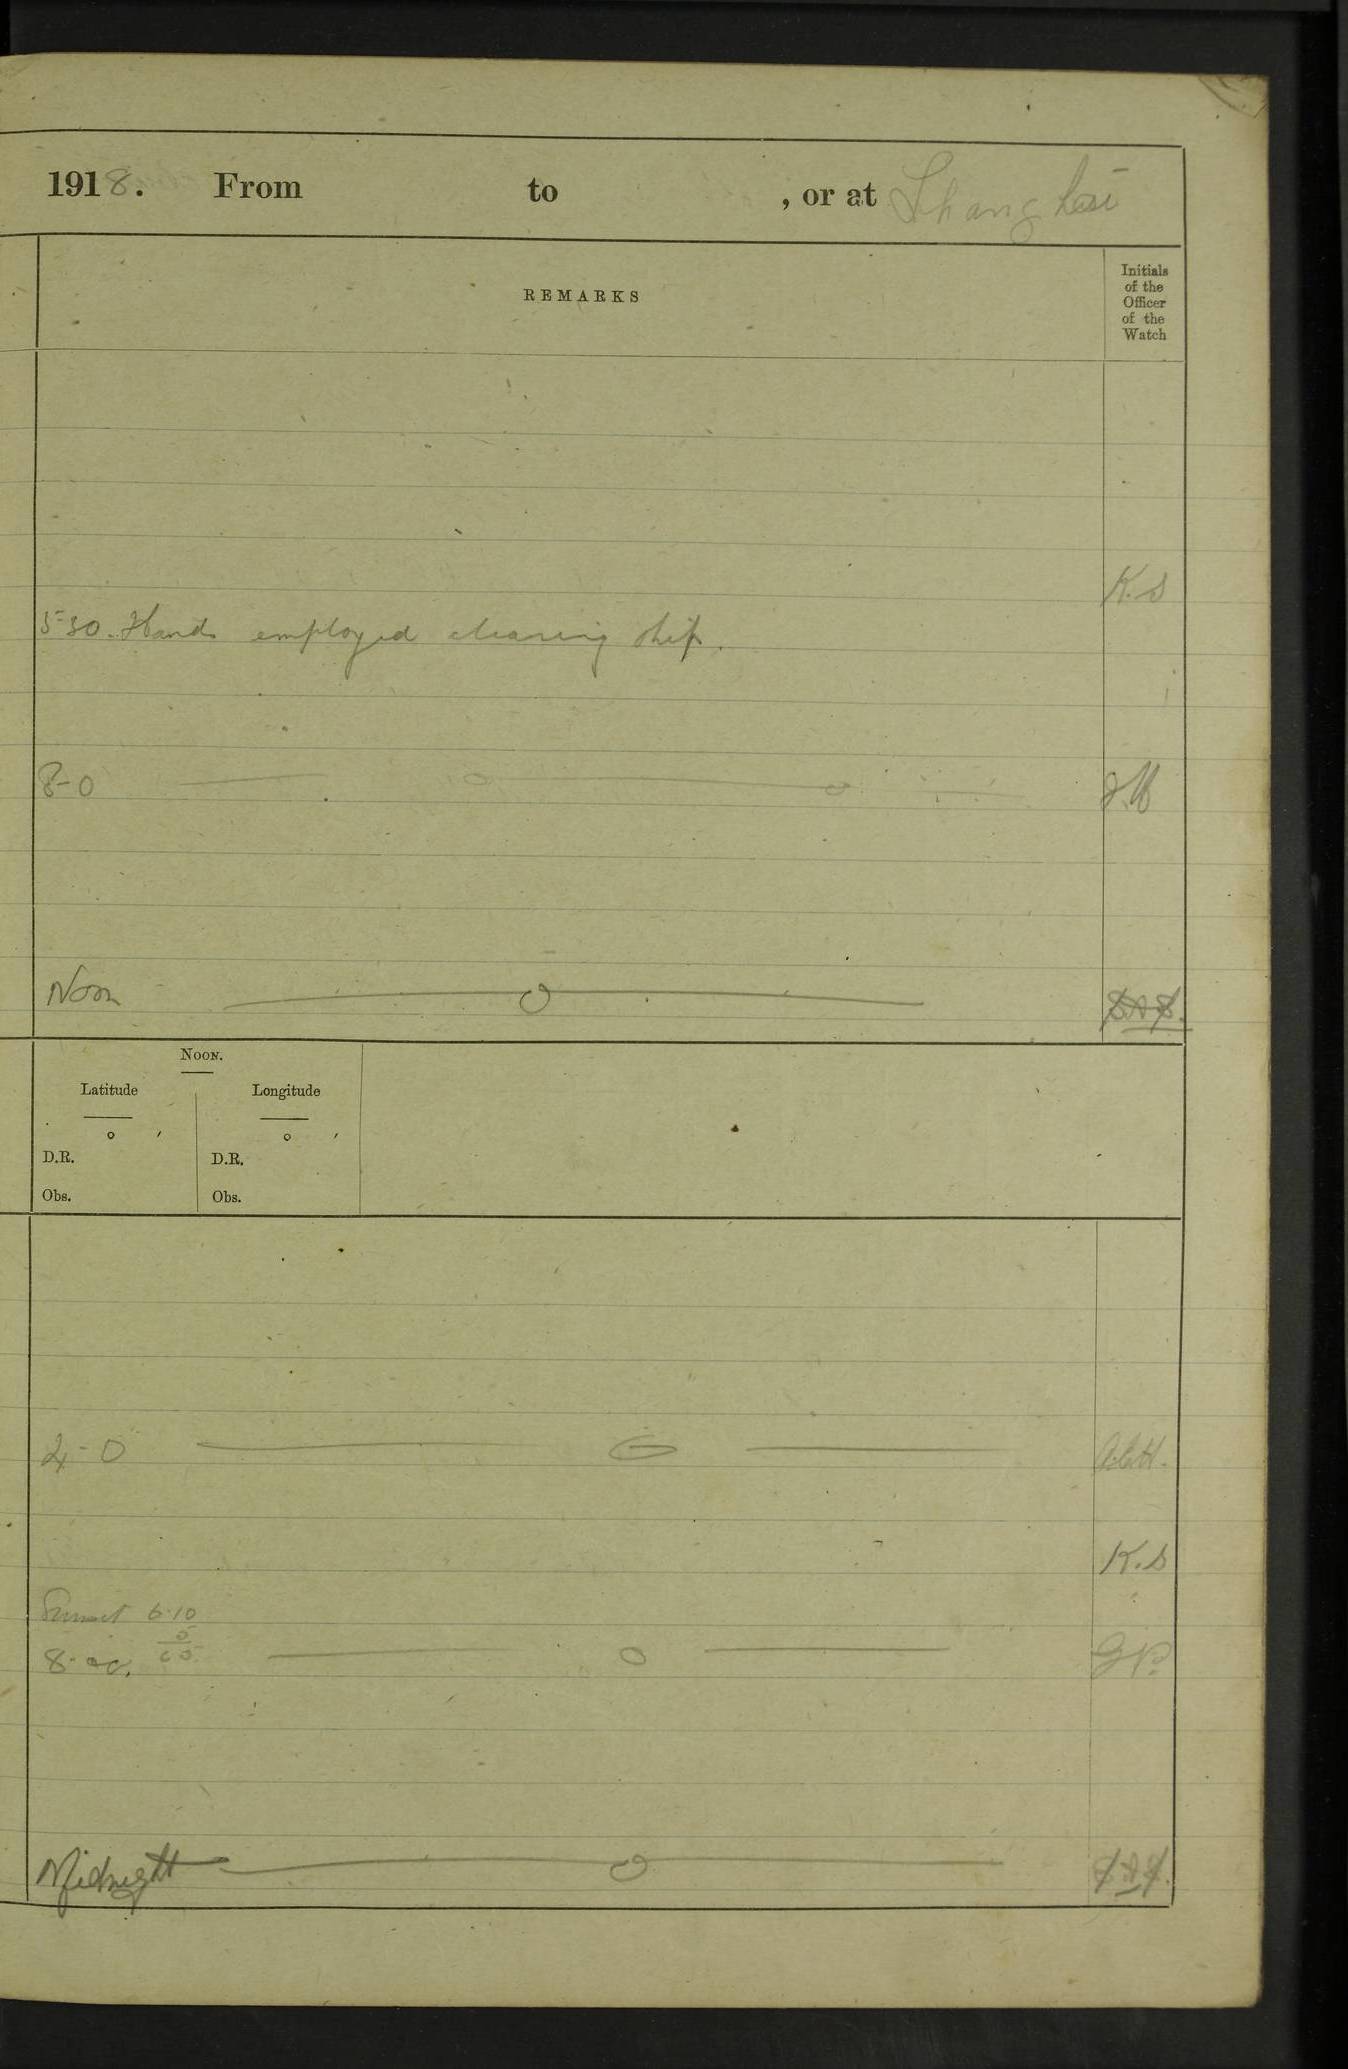 1918. From to , or at Shanghai
REMARKS
Initials
of the
Officer
of the
Watch
K.S
5-30. Hands employed cleaning ship.
8-0
Noon
NOON.
Latitude Longitude
° ′ ° ′
D.R. D.R.
Obs. Obs.
4-0
K.S
Sunset 6.10
5
6 5
8.
Midnight